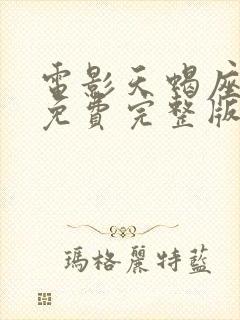 電影天蝎座
免費完整版
瑪格麗特藍